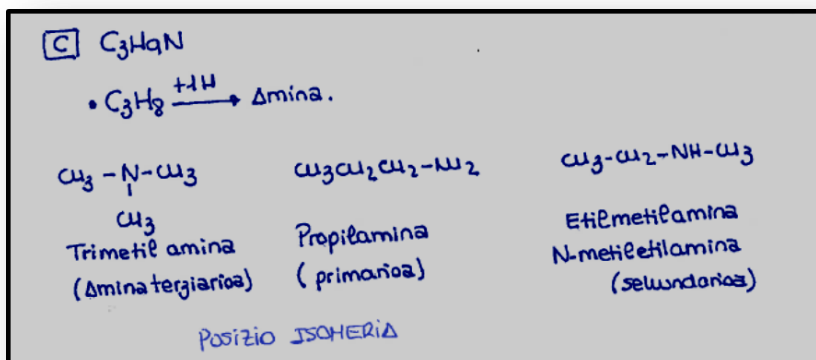 C C3H9N
• C3H8 +1H → Amina.
CH3-N-CH3
CH3
Trimetil amina
(Amina tergiarioa)
CH3CH2CH2-NH2
Propilamina
(primarioa)
CH3-CH2-NH-CH3
Etilmetilamina
N-metiletilamina
(sekundarioa)
Posizio ISOMERIA